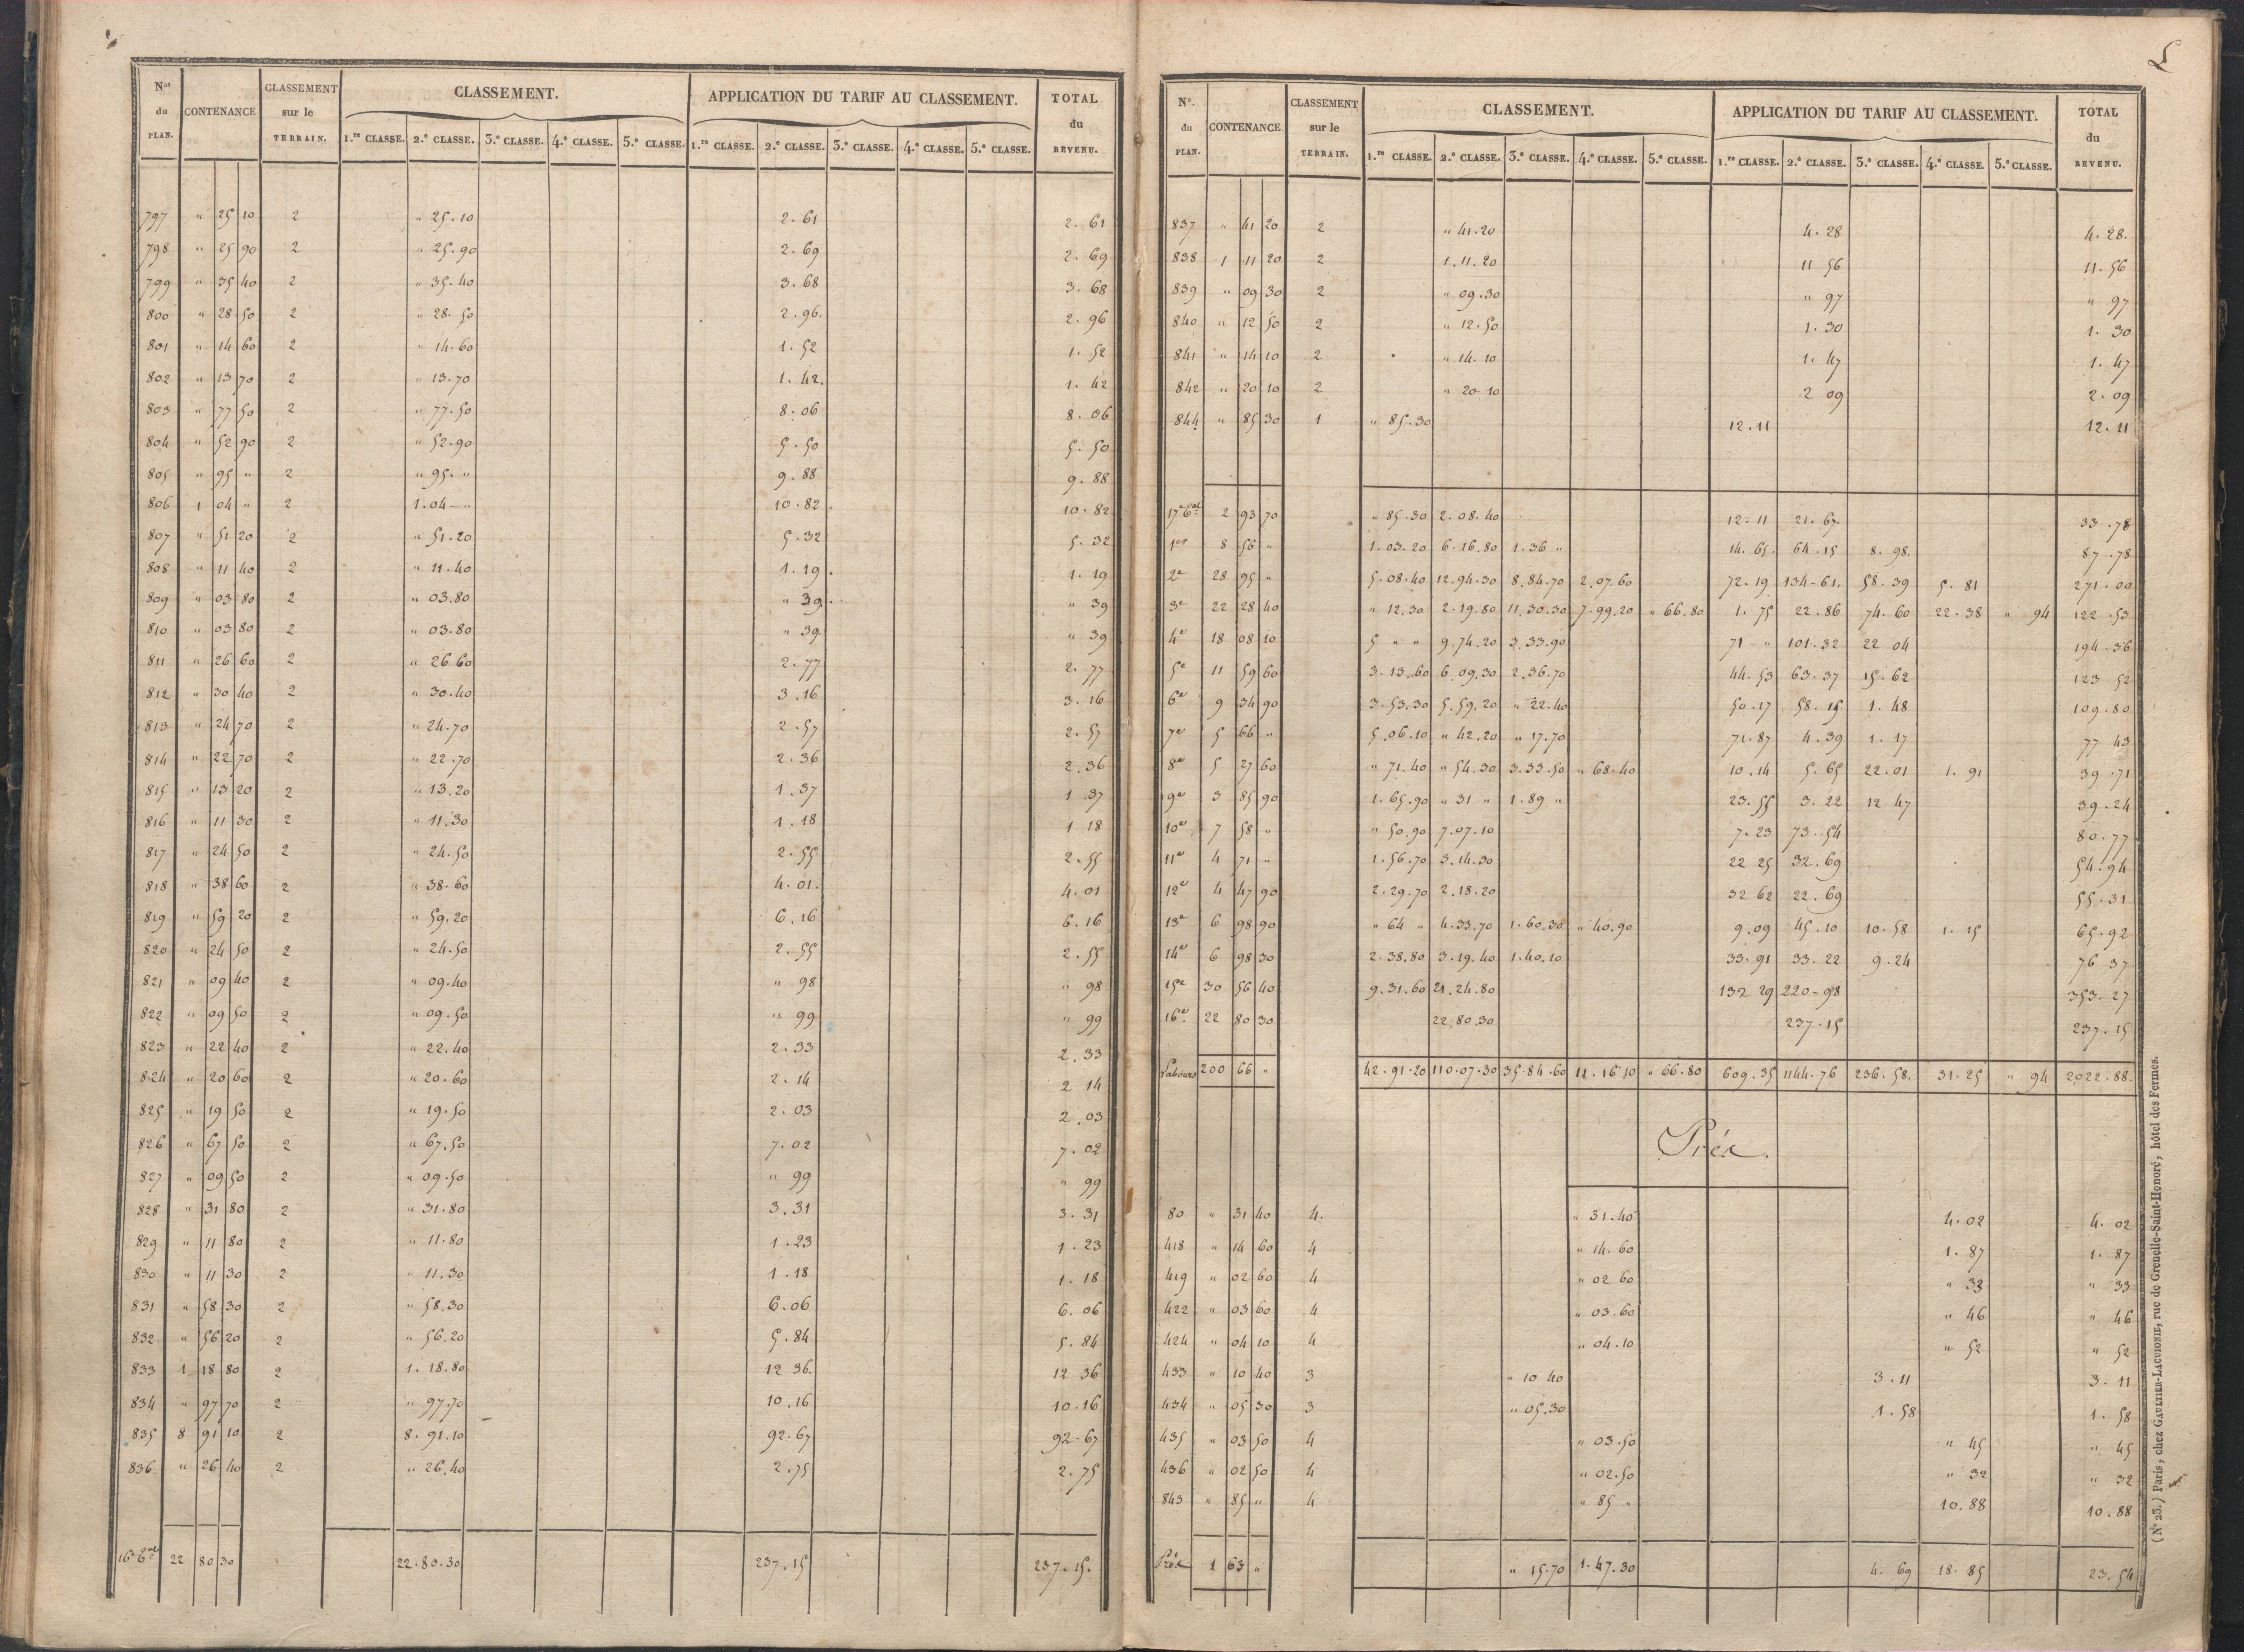 N.os du PLAN. CONTENANCE CLASSEMENT sur le TERRAIN. CLASSEMENT. APPLICATION DU TARIF AU CLASSEMENT. TOTAL du REVENU.
1.re CLASSE. 2.e CLASSE. 3.e CLASSE. 4.e CLASSE. 5.e CLASSE. 1.re CLASSE. 2.e CLASSE. 3.e CLASSE. 4.e CLASSE. 5.e CLASSE.
797 " 25 10 2 " 25.10 2.61 2.61
798 " 25 90 2 " 25.90 2.69 2.69
799 " 35 40 2 " 35.40 3.68 3.68
800 " 28 50 2 " 28.50 2.96. 2.96
801 " 14 60 2 " 14.60 1.52 1.52
802 " 13 70 2 " 13.70 1.42. 1.42
803 " 77 50 2 " 77.50 8.06 8.06
804 " 52 90 2 " 52.90 5.50 5.50
805 " 95 " 2 " 95. " 9.88 9.88
806 1 04 " 2 1.04 - " 10.82 10.82
807 " 51 20 2 " 51.20 5.32 5.32
808 " 11 40 2 " 11.40 1.19. 1.19
809 " 03 80 2 " 03.80 " 39. " 39
810 " 03 80 2 " 03.80 " 39 " 39
811 " 26 60 2 " 26 60 2.77 2.77
812 " 30 40 2 " 30.40 3.16 3.16
813 " 24 70 2 " 24.70 2.57 2.57
814 " 22 70 2 " 22.70 2.36 2.36
815 " 13 20 2 " 13.20 1.37 1.37
816 " 11 30 2 " 11.30 1.18 1 18
817 " 24 50 2 " 24.50 2.55 2.55
818 " 38 60 2 " 38.60 4.01. 4.01
819 " 59 20 2 " 59.20 6.16 6.16
820 " 24 50 2 " 24.50 2.55 2.55
821 " 09 40 2 " 09.40 " 98 " 98
822 " 09 50 2 " 09.50 " 99 " 99
823 " 22 40 2 " 22.40 2.33 2.33
824 " 20 60 2 " 20.60 2.14 2 14
825 " 19 50 2 " 19.50 2.03 2.03
826 " 67 50 2 " 67.50 7.02 7.02
827 " 09 50 2 " 09.50 " 99 " 99
828 " 31 80 2 " 31.80 3.31 3.31
829 " 11 80 2 " 11.80 1.23 1.23
830 " 11 30 2 " 11.30 1.18 1.18
831 " 58 30 2 " 58.30 6.06 6.06
832 " 56 20 2 " 56.20 5.84 5.84
833 1 18 80 2 1.18.80 12 36. 12 36
834 " 97 70 2 " 97.70 10.16 10.16
835 8 91 10 2 8.91.10 92.67 92.67
836 " 26 40 2 " 26.40 2.75 2.75
16e 22 80 30 22.80.30 237.15 237.15.
N.o du PLAN. CONTENANCE CLASSEMENT sur le TERRAIN. CLASSEMENT. APPLICATION DU TARIF AU CLASSEMENT. TOTAL du REVENU.
1.re CLASSE. 2.e CLASSE. 3.e CLASSE. 4.e CLASSE. 5.e CLASSE. 1.re CLASSE. 2.e CLASSE. 3.e CLASSE. 4.e CLASSE. 5.e CLASSE.
837 " 41 20 2 " 41.20 4.28 4.28.
838 1 11 20 2 1.11.20 11 56 11.56
839 " 09 30 2 " 09.30 " 97 " 97
840 " 12 50 2 " 12.50 1.30 1.30
841 " 14 10 2 " 14.10 1.47 1.47
842 " 20 10 2 " 20 10 2 09 2.09
844 " 85 30 1 " 85.30 12.11 12.11
17e 2 93 70 " 85.30 2.08.40 12.11 21.67. 33.78
1er 8 56 " 1.03.20 6.16.80 1.36 " 14.65. 64.15 8.98. 87.78
2e 28 95 " 5.08.40 12.94.30 8.84.70 2.07.60 72.19 134-61. 58.39 5.81 271.00
3e 22 28 40 " 12.30 2.19.80 11.30.30 7.99.20 " 66.80 1.75 22.86 74.60 22.38 " 94 122.53
4e 18 08 10 5 " " 9.74.20 3.33.90 71 - " 101.32 22 04 194.36
5e 11 59 60 3.13.60 6.09.30 2.36.70 44.53 63.37 15.62 123 52
6e 9 34 90 3.53.30 5.59.20 " 22.40 50.17 58.15 1.48 109.80
7e 5 66 " 5.06.10 " 42.20 " 17.70 71.87 4.39 1.17 77 43
8e 5 27 60 " 71.40 " 54.30 3.33.50 " 68.40 10.14 5.65 22.01 1.91 39.71
9e 3 85 90 1.65.90 " 31 " 1.89 " 23.55 3.22 12 47 39.24
10e 7 58 " " 50.90 7.07.10 7.23 73.54 80.77
11e 4 71 " 1.56.70 3.14.30 22 25 32.69 54.94
12e 4 47 90 2.29.70 2.18.20 32 62 22.69 55.31
13e 6 98 90 " 64 " 4.33.70 1.60.30 " 40.90 9.09 45.10 10.58 1.15 65.92
14e 6 98 30 2.38.80 3.19.40 1.40.10 33.91 33.22 9.24 76 37
15e 30 56 40 9.31.60 21.24.80 132 29 220-98 353.27
16e 22 80 30 22.80.30 237.15 237.15
Labours 200 66 " 42.91.20 110.07.30 35.84.60 11.16 10 " 66.80 609.35 1144.76 236.58. 31.25 " 94 2022.88.
Prés.
80 " 31 40 4. " 31.40 4.02 4.02
418 " 14 60 4 " 14.60 1.87 1.87
419 " 02 60 4 " 02 60 " 33 " 33
422 " 03 60 4 " 03.60 " 46 " 46
424 " 04 10 4 " 04.10 " 52 " 52
433 " 10 40 3 " 10 40 3.11 3.11
434 " 05 30 3 " 05.30 1.58 1.58
435 " 03 50 4 " 03.50 " 45 " 45
436 " 02 50 4 " 02.50 " 32 " 32
843 " 85 " 4 " 85 " 10.88 10.88
Prés 1 63 " " 15.70 1.47.30 4.69 18.85 23.54
(N° 23.) Paris, chez GAULTIER-LAGUIONIE, rue de Grenelle-Saint-Honoré, hôtel des Fermes.